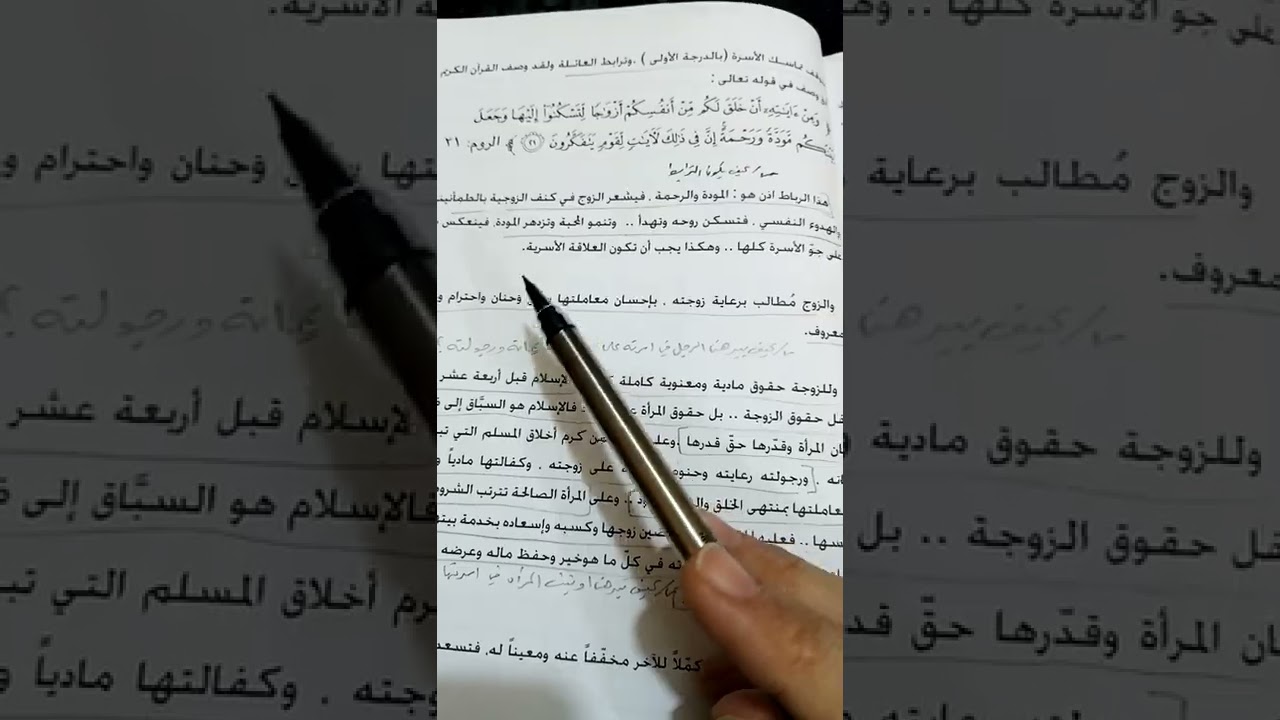 تماسك الأسرة (بالدرجة الأولى) .وترابط العائلة ولقد وصف القرآن الكريم
وصف في قوله تعالى :
وَمِنْ ءَايَٰتِهِۦٓ أَنْ خَلَقَ لَكُم مِّنْ أَنفُسِكُمْ أَزْوَٰجًا لِّتَسْكُنُوٓا۟ إِلَيْهَا وَجَعَلَ
بَيْنَكُم مَّوَدَّةً وَرَحْمَةً إِنَّ فِى ذَٰلِكَ لَءَايَٰتٍ لِّقَوْمٍ يَتَفَكَّرُونَ ﴿٢١﴾ الروم: ٢١
س/ كيف يكون الترابط
هذا الرباط اذن هو : المودة والرحمة . فيشعر الزوج في كنف الزوجية بالطمأنينة
والهدوء النفسي . فتسكن روحه وتهدأ .. وتنمو المحبة وتزدهر المودة. فينعكس
على جوّ الأسرة كلها .. وهكذا يجب أن تكون العلاقة الأسرية.
والزوج مُطالب برعاية زوجته . بإحسان معاملتها وحنان واحترام و
معروف.
س/ كيف يبرهن الرجل في اسرته على ورجولته
وللزوجة حقوق مادية ومعنوية كاملة لإسلام قبل أربعة عشر
حقوق الزوجة .. بل حقوق المرأة فالإسلام هو السبَّاق إلى
المرأة وقدّرها حقّ قدرها .وعلى من كرم أخلاق المسلم التي
ورجولته رعايته وحنوه على زوجته . وكفالتها مادياً و
معاملتها بمنتهى الخلق . وعلى المرأة الصالحة تترتب الشروط
.. فعليها زوجها وكسبه وإسعاده بخدمة
في كلّ ما هو خير وحفظ ماله وعرضه
س/ كيف تبرهن المرأة في اسرتها
كمّلاً للآخر مخفّفاً عنه ومعيناً له. فتسعد